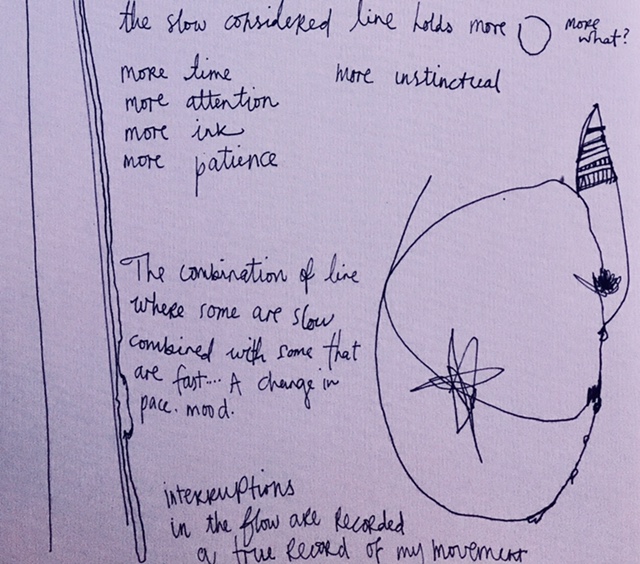 the slow considered line holds more more what?
more time more instinctual
more attention
more ink
more patience
The combination of line
where some are slow
combined with some that
are fast.... A change in
pace. mood.
interruptions
in the flow are recorded
a true record of my movement